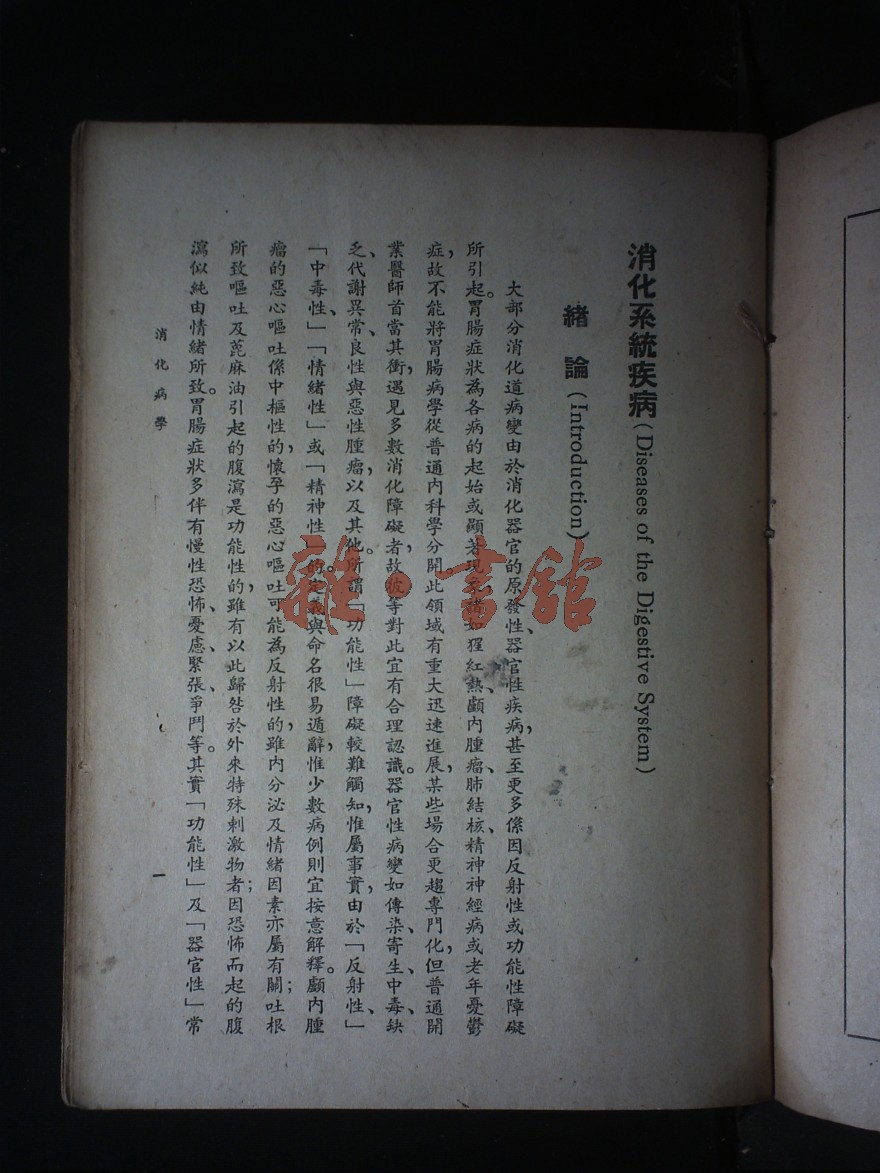 消化系統疾病(Diseases of the Digestive System)
緒論(Introduction)
大部分消化道病變由於消化器官的原發性、器官性疾病,甚至更多係因反射性或功能性障礙
所引起。胃腸症狀為各病的起始或顯著現象,猶如猩紅熱、顱内腫瘤、肺結核、精神神經病或老年憂鬱
症,故不能將胃腸病學從普通内科學分開此領域有重大迅速進展,某些場合更趨專門化,但普通開
業醫師首當其衝,遇見多數消化障礙者,故彼等對此宜有合理認識。器官性病變如傳染、寄生、中毒、缺
乏、代謝異常、良性與惡性腫瘤,以及其他。所謂「功能性」障礙較難觸知,惟屬事實,由於「反射性、」
「中毒性、」「情緒性」或「精神性」的。定義與命名很易遁辭,惟少數病例則宜按意解釋。顱内腫
瘤的惡心嘔吐係中樞性的,懷孕的惡心嘔吐可能為反射性的,雖内分泌及情緒因素亦屬有關;吐根
所致嘔吐及蓖麻油引起的腹瀉是功能性的,雖有以此歸咎於外來特殊刺激物者;因恐怖而起的腹
瀉似純由情緒所致。胃腸症狀多伴有慢性恐怖、憂慮、緊張、爭鬥等。其實「功能性」及「器官性」常
消化病學
一
雜·書館